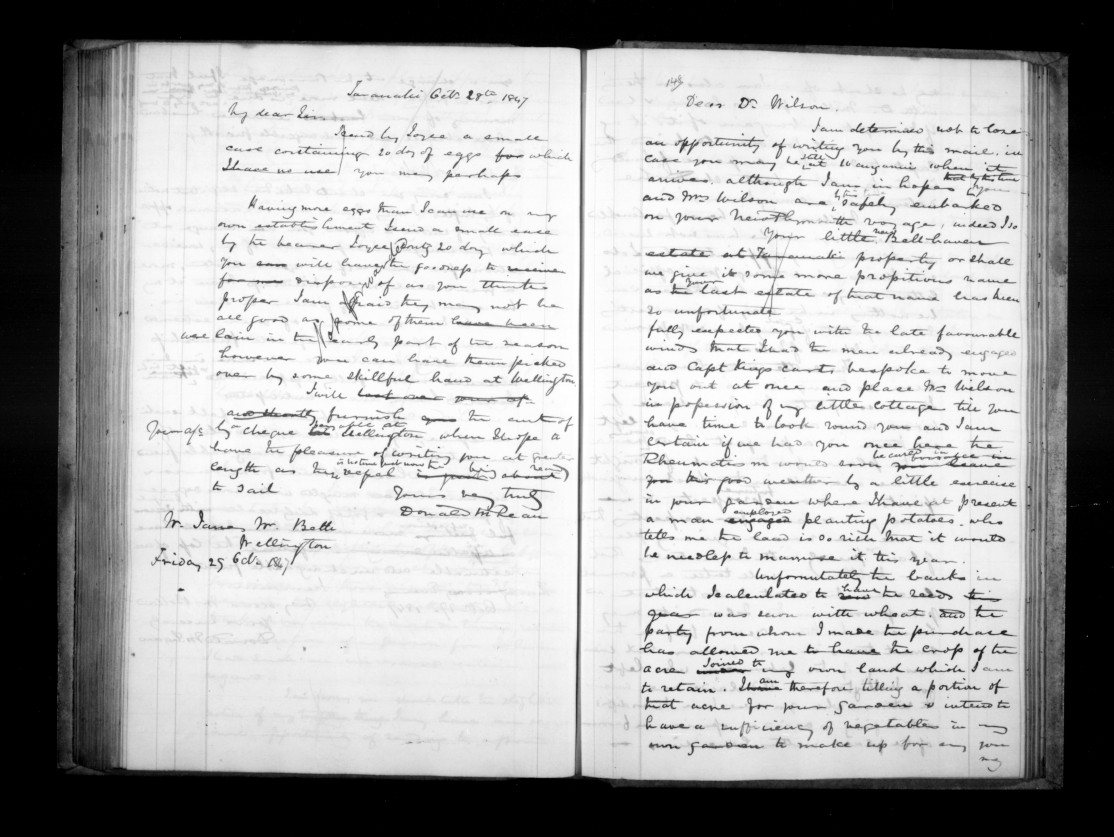 Taranaki Octr 28th 1847
My dear Sir
I send by Joyce a small
case containing 20 doz of eggs for which
I have no use you may perhaps
Having more eggs than I can use on my
own establishment I send a small case
by the bearer Joyce only 20 doz which
you can will have the goodness to receive
for me dispose of as you think
proper I am afraid they may not be
all good as some of them have been
lain in the early part of the season
however you can have them picked
over by some skillful hand at Wellington
I will
and shortly furnish the amt of
your a/c by cheque at Wellington when I hope
have the pleasure of writing you at greater
length as the vessel is being ready
to sail
Yours very truly
Donald McLean
Mr James Mr. Beth
Wellington
Friday 29 Octr 1847
143
Dear Dr Wilson.
I am determined not to lose
an opportunity of writing you by this mail, in
case you may be still at Wanganui when it
arrives. although I am in hopes that by this time you
and Mrs Wilson are safely embarked
on your New Plymouth voyage, indeed I so
Your little new Bellhaven
estate at Taranaki property or shall
we give it some more propitious name
as your last estate of that name has been
so unfortunate
fully expected you with the late favourable
winds that I had the men already engaged
and Capt Kings carts bespoke to move
you out at once and place Mrs Wilson
in possession of my little cottage till you
have time to look round you and I am
certain if we had you once here the
Rheumatism would soon leave
you this good weather by a little exercise
in your garden where I have at present
a man engaged employed planting potatoes. who
tells me the land is so rich that it would
be needless to manure it this year.
Unfortunately the land in
which I calculated to have the seeds this
year was sown with wheat and the
party from whom I made the purchase
has allowed me to have the crop of the
acre joined to my own land which I am
to retain. I have am therefore tilling a portion of
that acre for your garden & intend to
have a sufficiency of vegetables in my
own garden to make up for any you
may